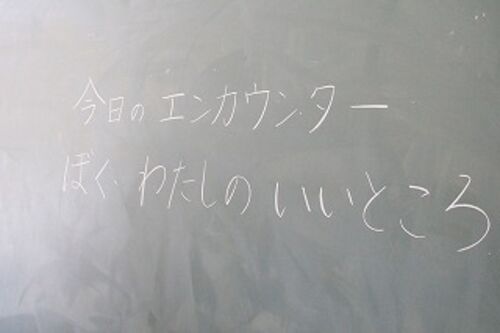 今日のエンカウンター
ぼく、わたしのいいところ